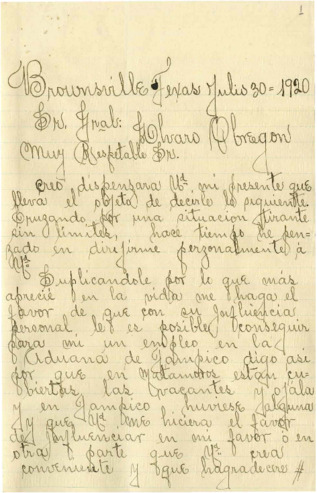 1
Brownsville Texas Julio 30=1920
Sr. Gral: Alvaro Obregon
Muy Respetable Sr.
Creo, dispensara Ud. mi presente que
lleva el objeto de decirle lo siguiente
Cruzando, por una situacion tirante
sin limites, hace tiempo he pen-
zado en dirijirme perzonalmente á
Ud.
Suplicandole, por lo que más
apreciè en la vida me haga el
favor de que con su influencia
personal, le es posible, conseguir
para mi un empleo, en la
Aduana de Tampico digo asi
por que en Matamoros estan cu-
biertas, las vacantes y ojala
y en Tampico huviese alguna
y que Ud. me hiciera el favor
de influenciar en mi favor ò en
otra parte que Ud. crea
conveniente y que hagradecere #